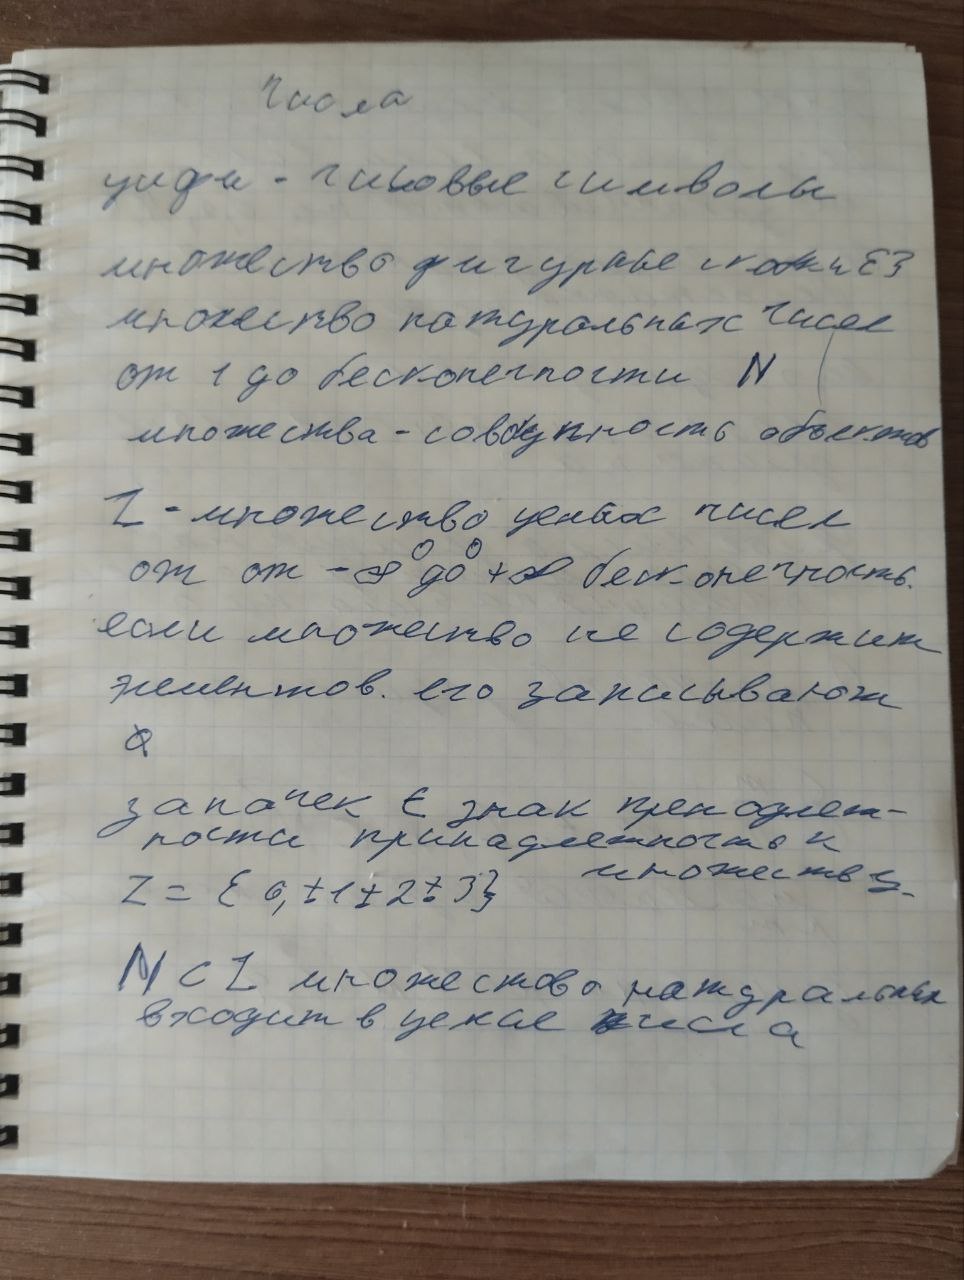 Числа
цифи - числовые символы
множество фигурные скобки {}
множество натуральных чисел
от 1 до бесконечности N
множества - совокупность объектов
Z - множество целых чисел
от от -∞ до +∞ бесконечность.
если множество не содержит
элементов. его записывают
∅
значек ∈ знак
ности принадлежность к
множеству.
Z = { 0, ±1 ± 2 ± 3}
N ⊂ Z множество натуральных
входит в целые числа